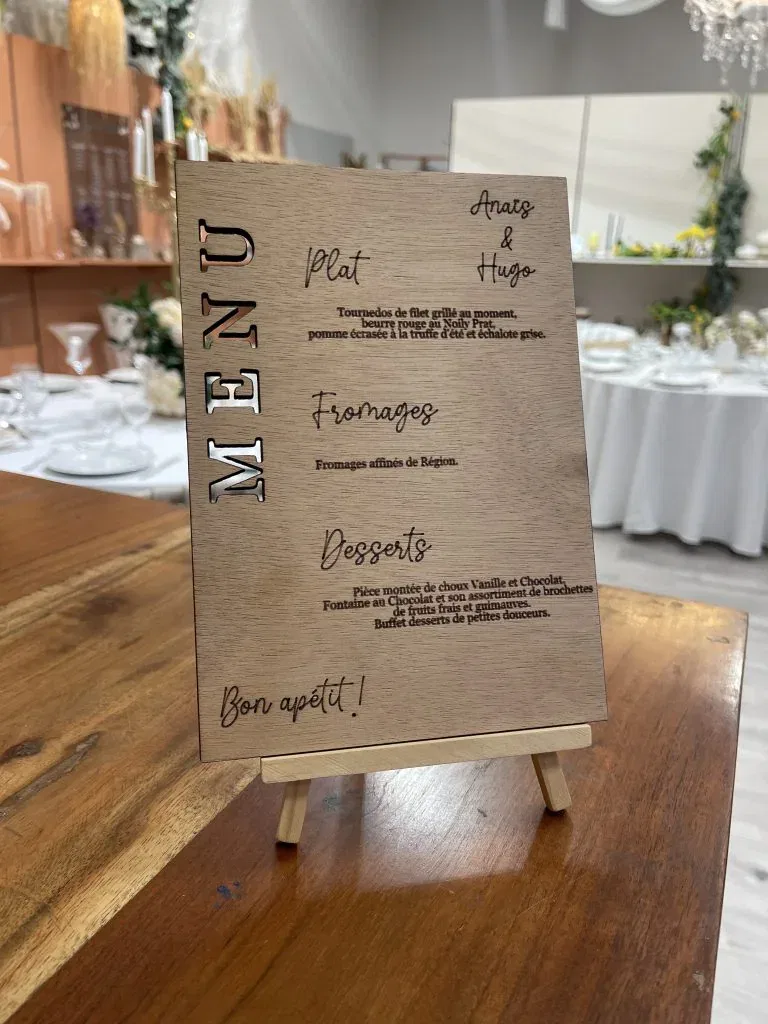 MENU
Anaïs
&
Hugo
Plat
Tournedos de filet grillé au moment,
beurre rouge au Noily Prat,
pomme écrasée à la truffe d'été et échalote grise.
Fromages
Fromages affinés de Région.
Desserts
Pièce montée de choux Vanille et Chocolat,
Fontaine au Chocolat et son assortiment de brochettes
de fruits frais et guimauves.
Buffet desserts de petites douceurs.
Bon apétit !